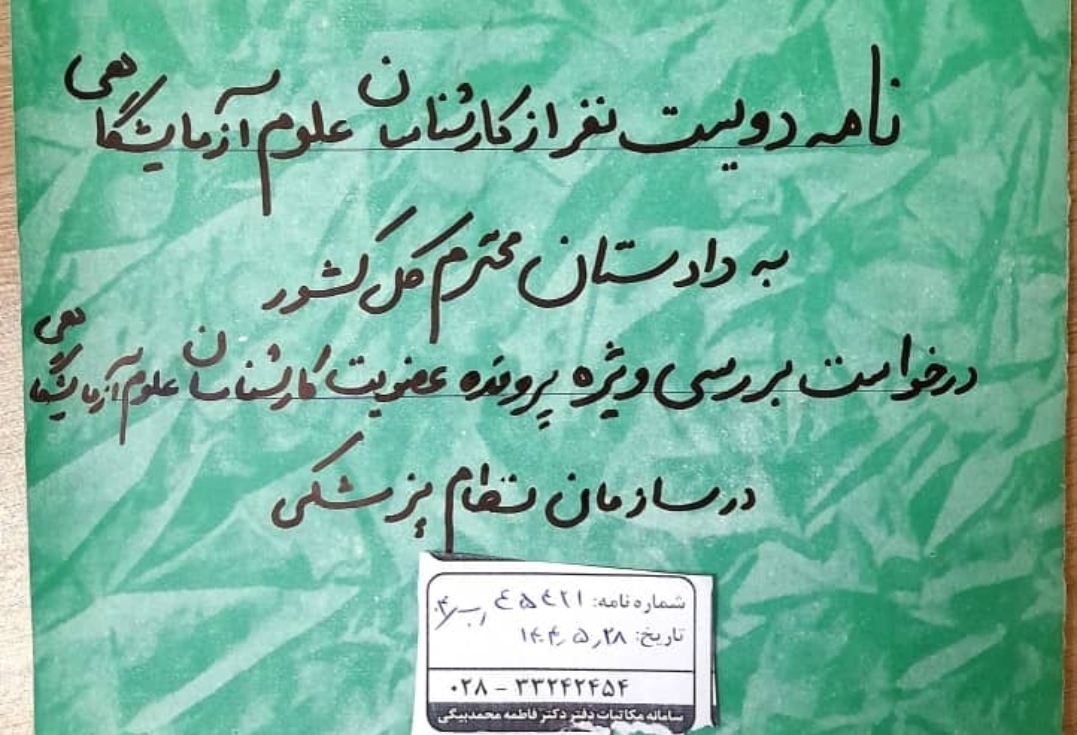 نامه دویست نفر از کارشناسان علوم آزمایشگاهی
به دادستان محترم کل کشور
درخواست بررسی ویژه پرونده عضویت کارشناسان علوم آزمایشگاهی
در سازمان نظام پزشکی
شماره نامه: ٤٥٤٢١
تاریخ: ۱۴۰۴٫۵٫۲۸
۰۲۸ - ۳۳۲۴۲۴۵۴
سامانه مکاتبات دفتر دکتر فاطمه محمدبیگی